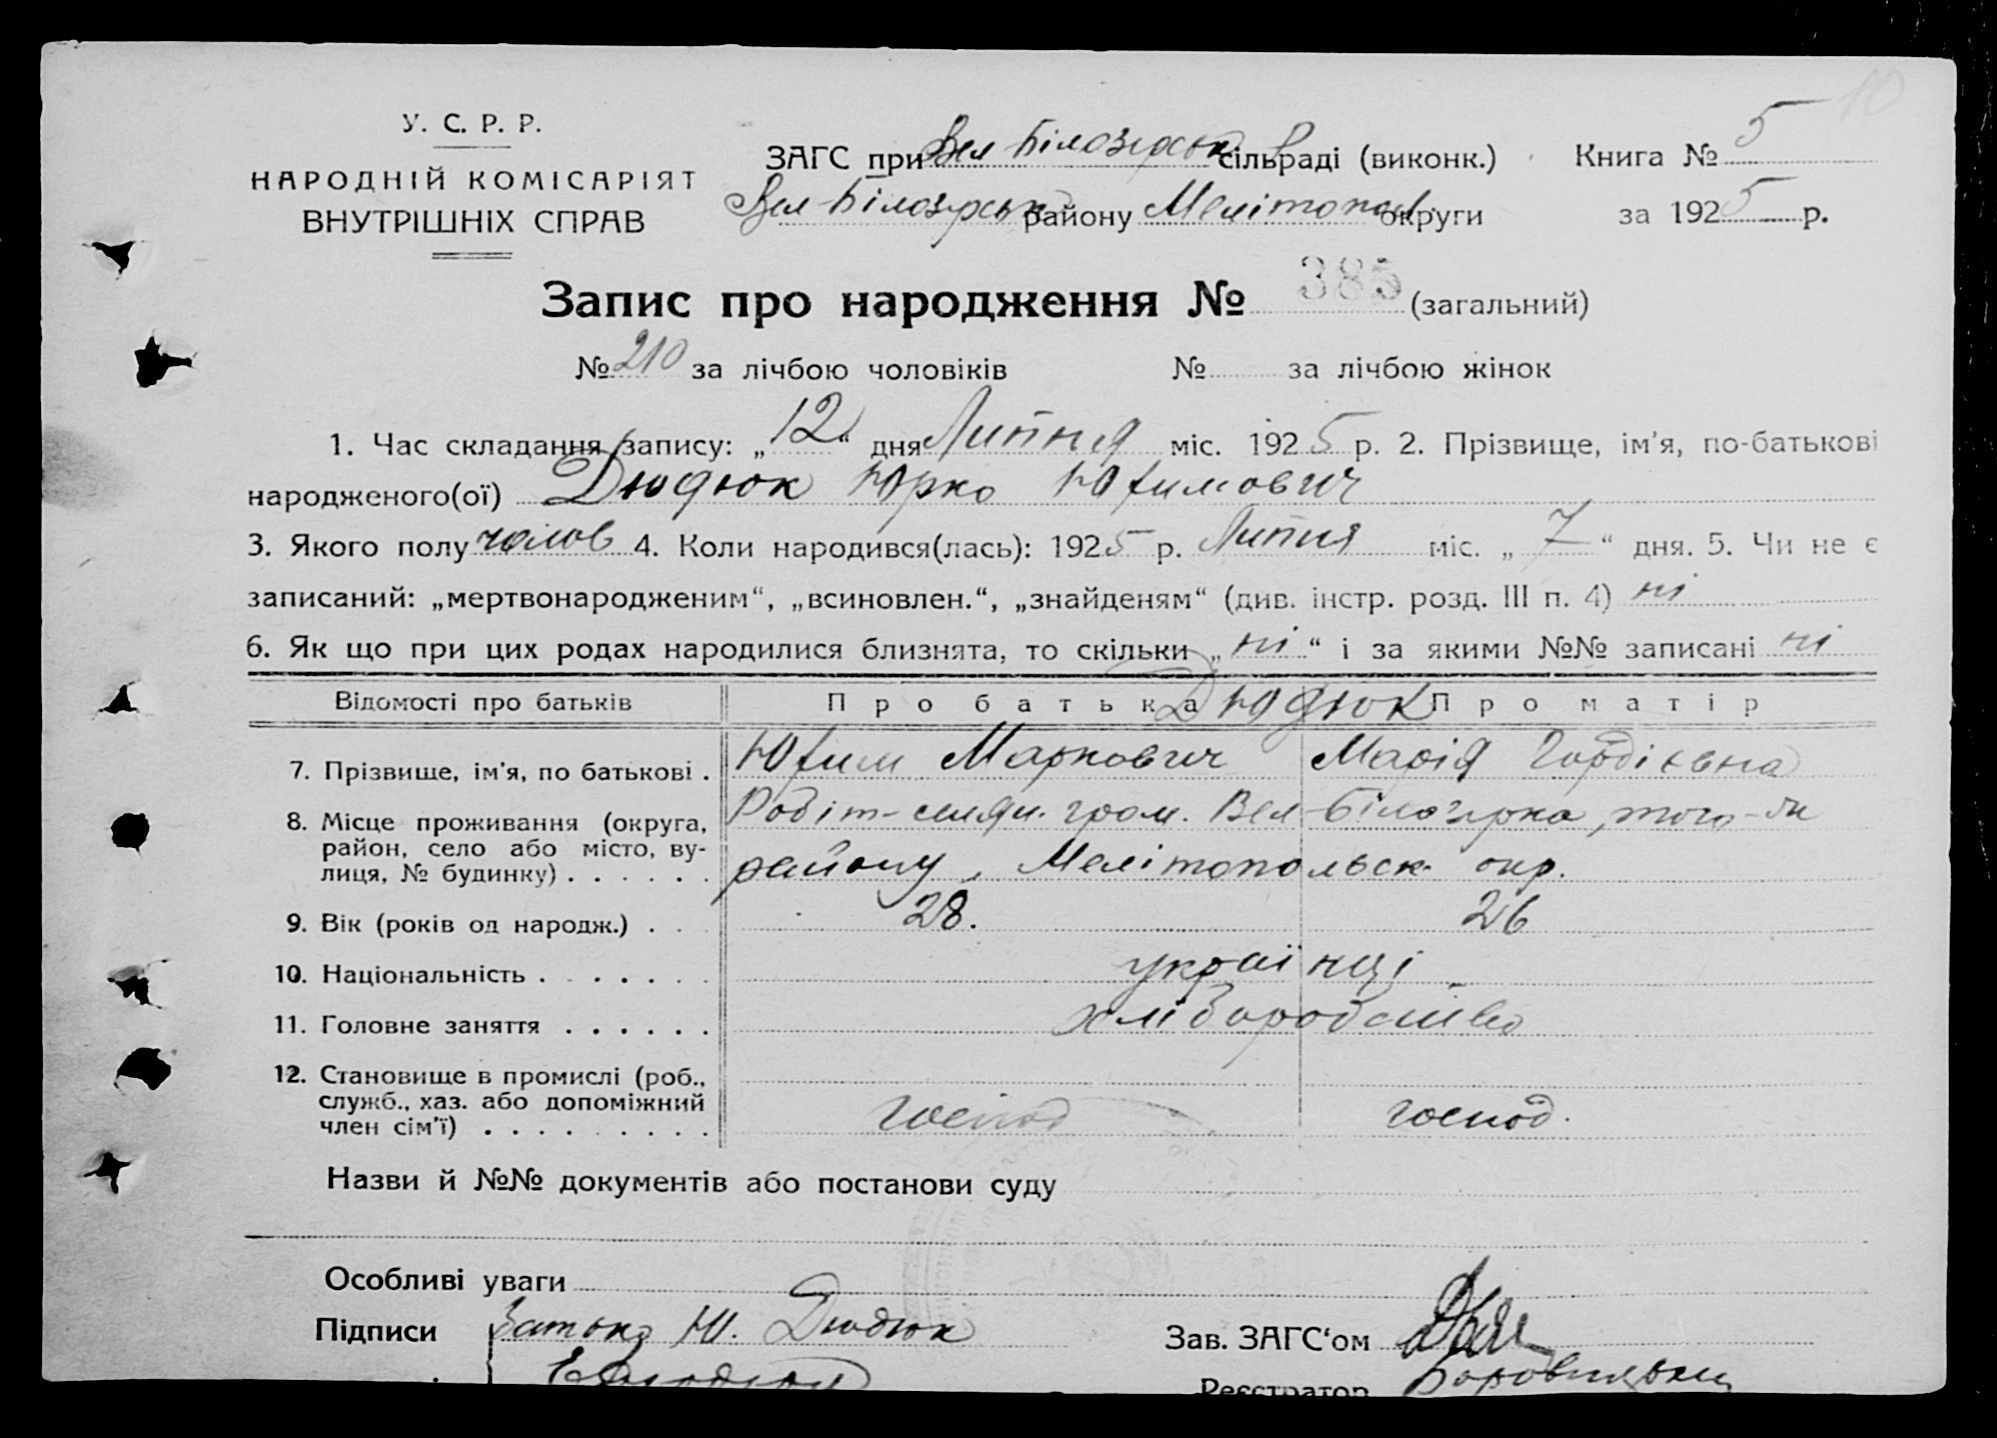 У. С. Р. Р.
НАРОДНІЙ КОМІСАРІЯТ
ВНУТРІШНІХ СПРАВ
ЗАГС при Вел Білозірськ сільраді (виконк.) Книга № 5
Вел-Білозірськ району Мелітопол. округи за 1925 р.
Запис про народження № 385 (загальний)
№ 210 за лічбою чоловіків № за лічбою жінок
1. Час складання запису: „12“ дня Липня міс. 1925 р. 2. Прізвище, ім'я, по-батькові
народженого(ої) Дюдюк Юрко Юхимович
3. Якого полу чолов 4. Коли народився(лась): 1925 р. Липня міс. „7“ дня. 5. Чи не є
записаний: „мертвонародженим“, „всиновлен.“, „знайденям“ (див. інстр. розд. III п. 4) ні
6. Як що при цих родах народилися близнята, то скільки „ні“ і за якими №№ записані ні
Відомості про батьків Про батька Дюдюк Про матір
7. Прізвище, ім'я, по батькові . Юхим Маркович Марія Гордієвна
8. Місце проживання (округа, район, село або місто, вулиця, № будинку) . . . . . . Робіт-селян. гром. Вел-Білозірка, того-ж
району, Мелітопольськ. окр.
9. Вік (років од народж.) . . . 28. 26
10. Національність . . . . . . . українці
11. Головне заняття . . . . . . хліборобство
12. Становище в промислі (роб., служб., хаз. або допоміжний член сім'ї) . . . . . . . . . господ господ.
Назви й №№ документів або постанови суду
Особливі уваги
Підписи Батько Ю. Дюдюк Зав. ЗАГС‘ом
Реєстратор